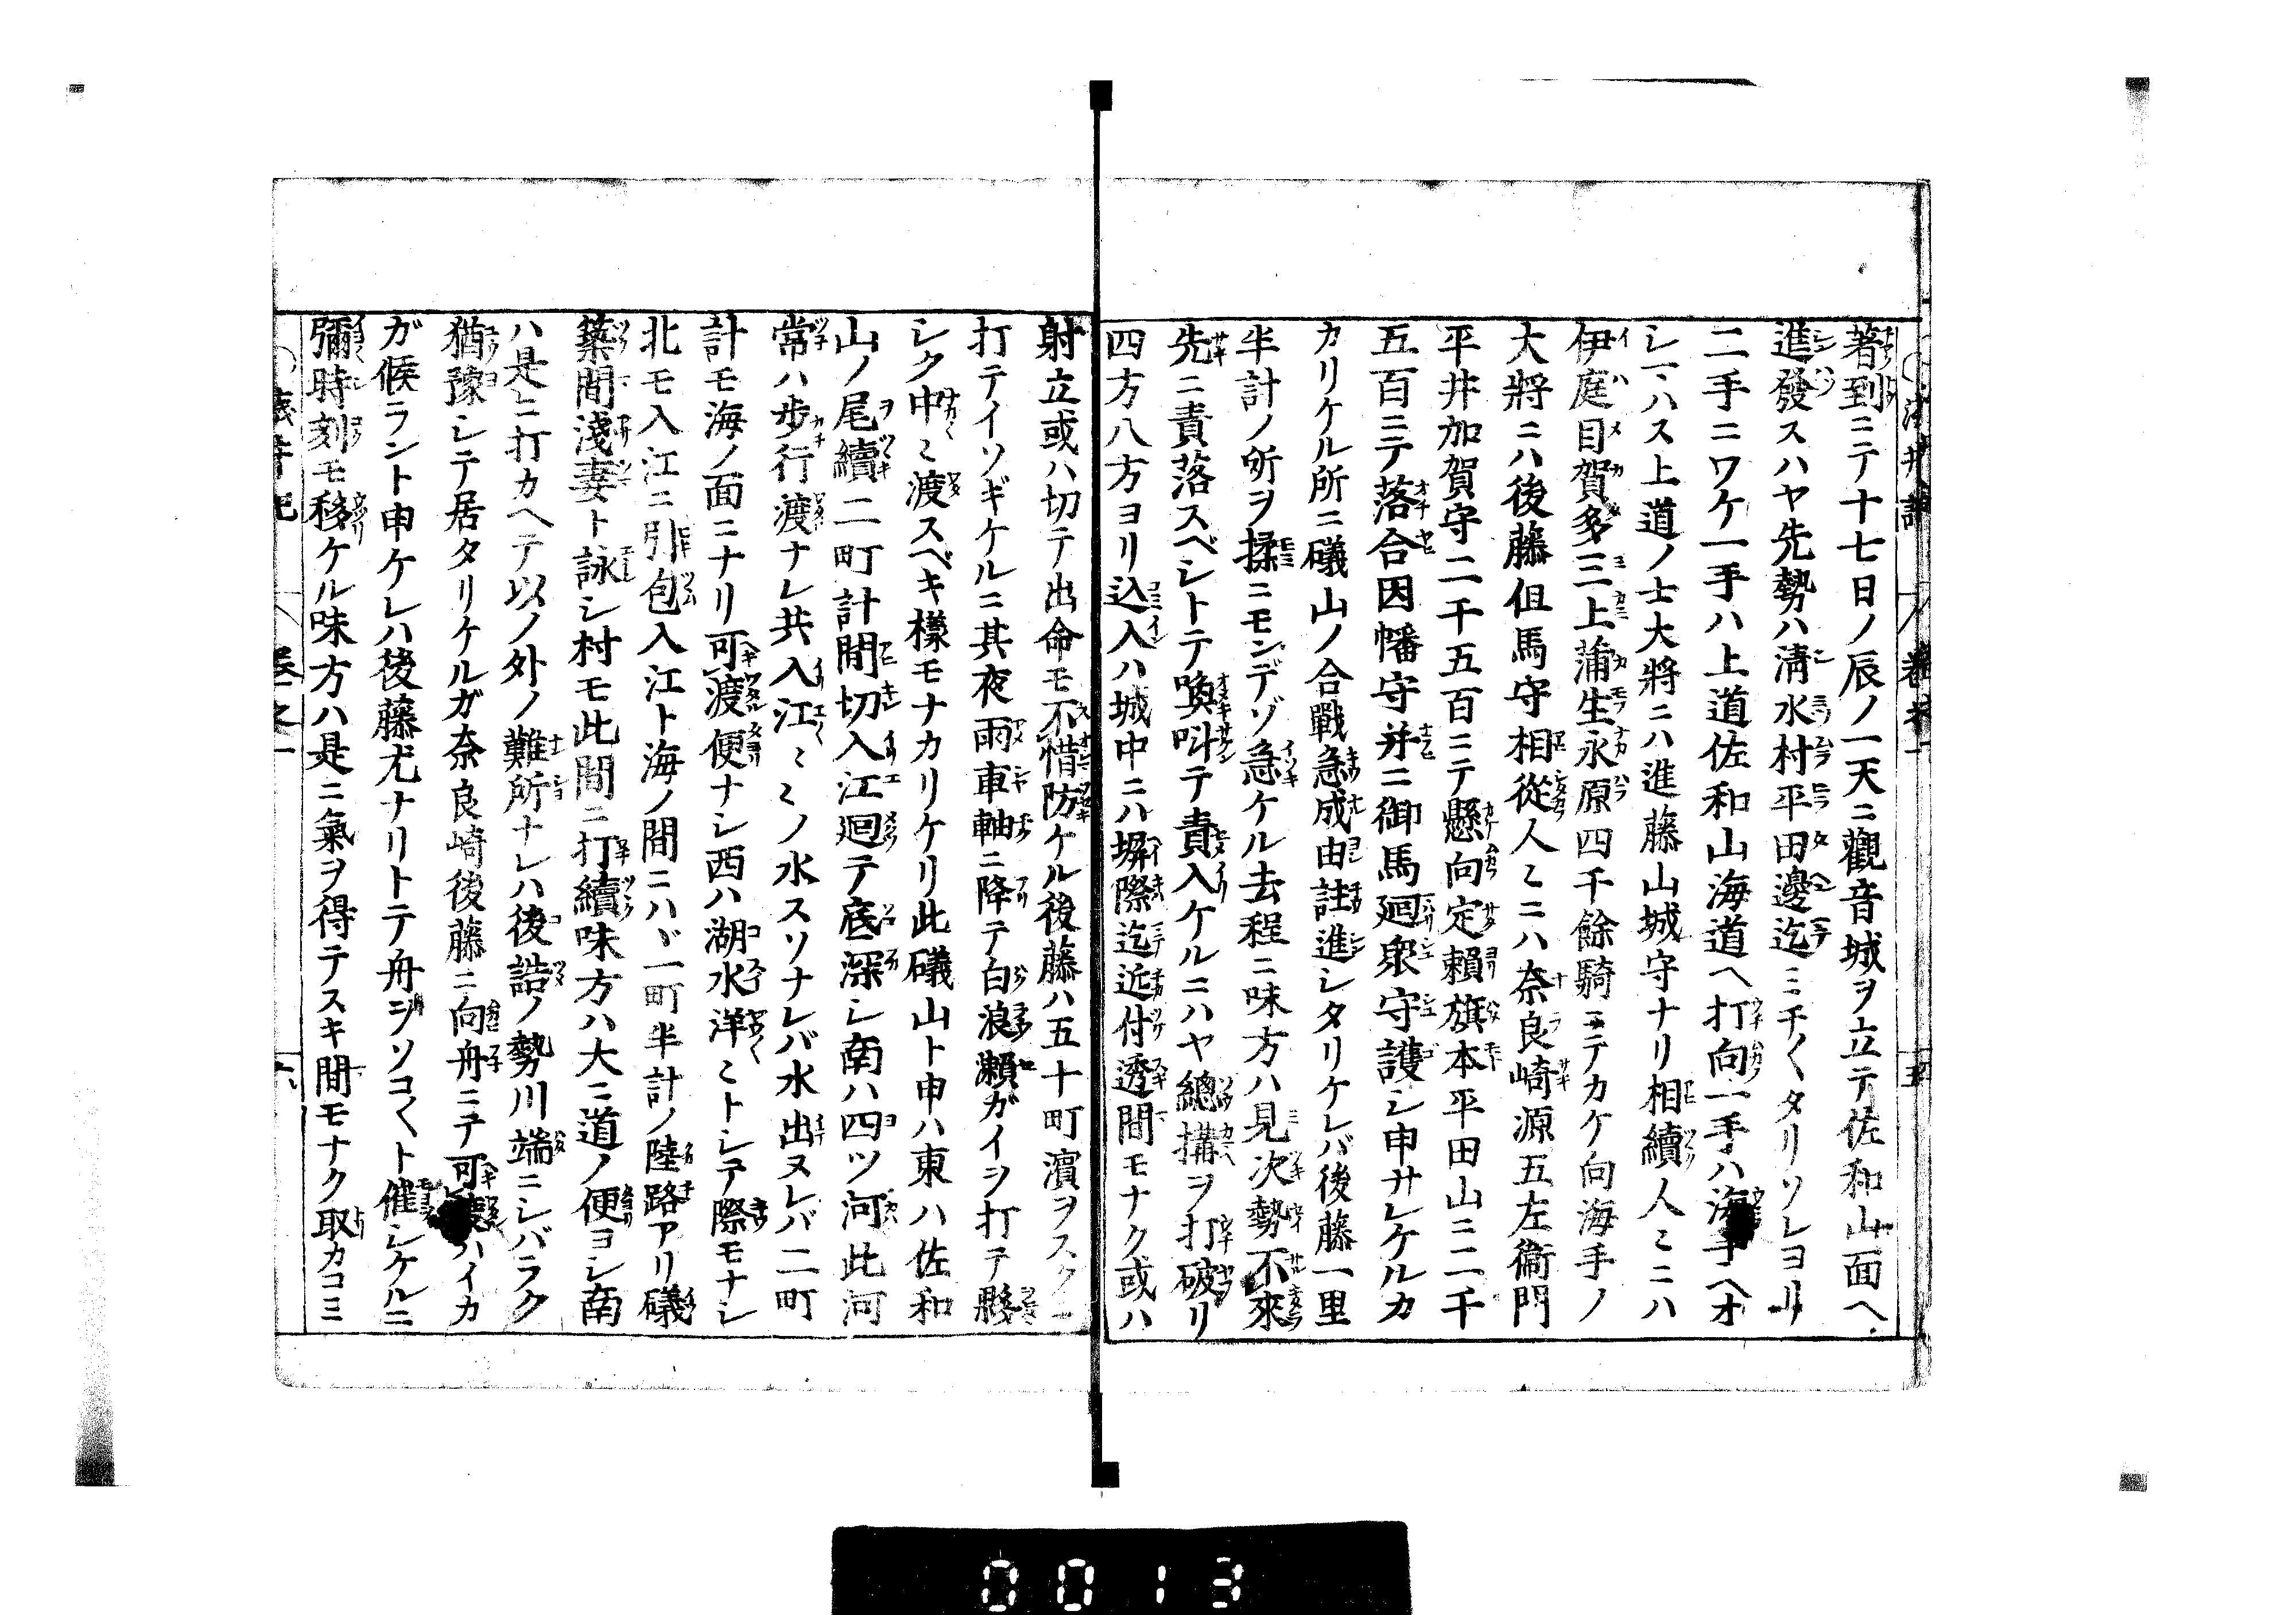 著到ニテ十七日ノ辰ノ一天ニ觀音城ヲ立テ佐和山面ヘ
進發スハヤ先勢ハ淸水村平田邊迄ミチ〱タリソレヨリ
二手ニワケ一手ハ上道佐和山海道ヘ打向一手ハ海手ヘオ
シ一ハス上道ノ士大將ニハ進藤山城守ナリ相續人〻ニハ
伊庭目賀多三上蒲生永原四千餘騎ニテカケ向海手ノ
大將ニハ後藤但馬守相從人〻ニハ奈良崎源五左衞門
平井加賀守二千五百ニテ懸向定賴旗本平田山ニ二千
五百ニテ落合因幡守并ニ御馬廻衆守護シ申サレケルカ
カリケル所ニ礒山ノ合戰急成由註進シタリケレバ後藤一里
半計ノ所ヲ揉ニモンデゾ急ケル去程ニ味方ハ見次勢不來
先ニ責落スベシトテ喚叫テ責入ケルニハヤ總搆ヲ打破リ
四方八方ヨリ込入ハ城中ニハ塀際迄近付透間モナク或ハ
射立或ハ切テ出命モ不惜防ケル後藤ハ五十町濵ヲスクニ
打テイソギケルニ其夜雨車軸ニ降テ白浪瀨ガイヲ打テ夥
シク中〻渡スベキ樣モナカリケリ此礒山ト申ハ東ハ佐和
山ノ尾續二町計間切入江廻テ底深シ南ハ四ツ河此河
常ハ步行渡ナレ共入江〻〻ノ水スソナレバ水出ヌレバ二町
計モ海ノ面ニナリ可渡便ナシ西ハ湖水洋〻トシテ際モナシ
北モ入江ニ引包入江ト海ノ間ニハ一町半計ノ陸路アリ礒
築間淺妻ト詠シ村モ此間ニ打續味方ハ大ニ道ノ便ヨシ南
ハ是ニ打カヘテ以ノ外ノ難所ナレハ後詰ノ勢川端ニシバラク
猶豫シテ居タリケルガ奈良崎後藤ニ向舟ニテ可渡ハイカ
ガ候ラント申ケレハ後藤尤ナリトテ舟ヲソコ〱ト催シケルニ
彌時刻モ移ケル味方ハ是ニ氣ヲ得テスキ間モナク取カコミ
0013